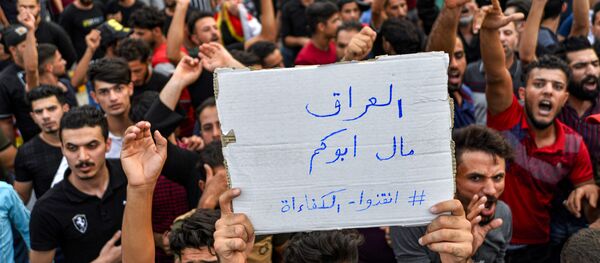 العراق
مال ابوكم
# انقذوا- الكفاءاة